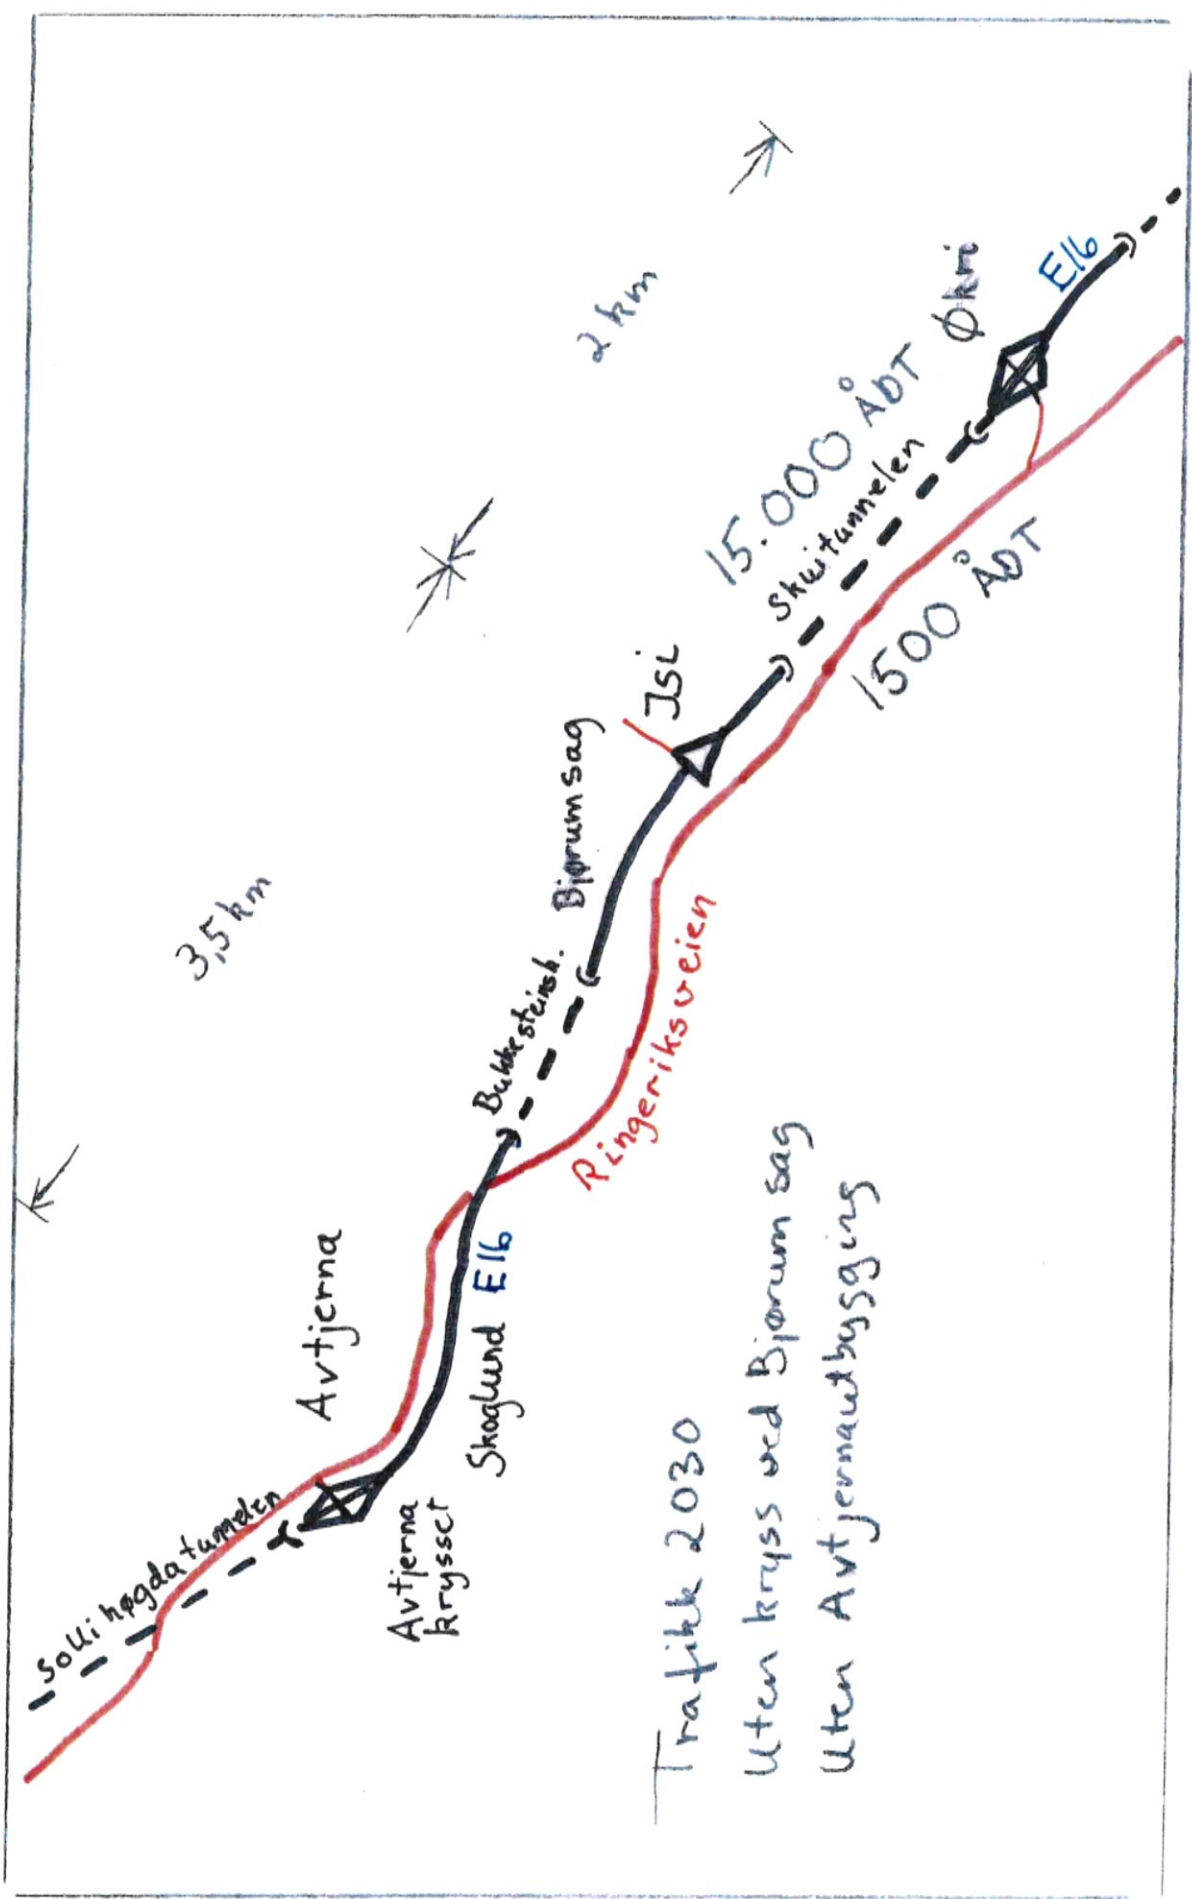 Sollihøgdatunnelen
Avtjerna
krysset
Avtjerna
Skoglund
E16
3,5 km
Bukkesteinsh.
Bjørumsag
Isi
Ringeriksveien
2 km
15.000 ÅDT
Skuitunnelen
1500 ÅDT
Økri
E16
Trafikk 2030
Uten kryss ved Bjørum sag
Uten Avtjernautbygging